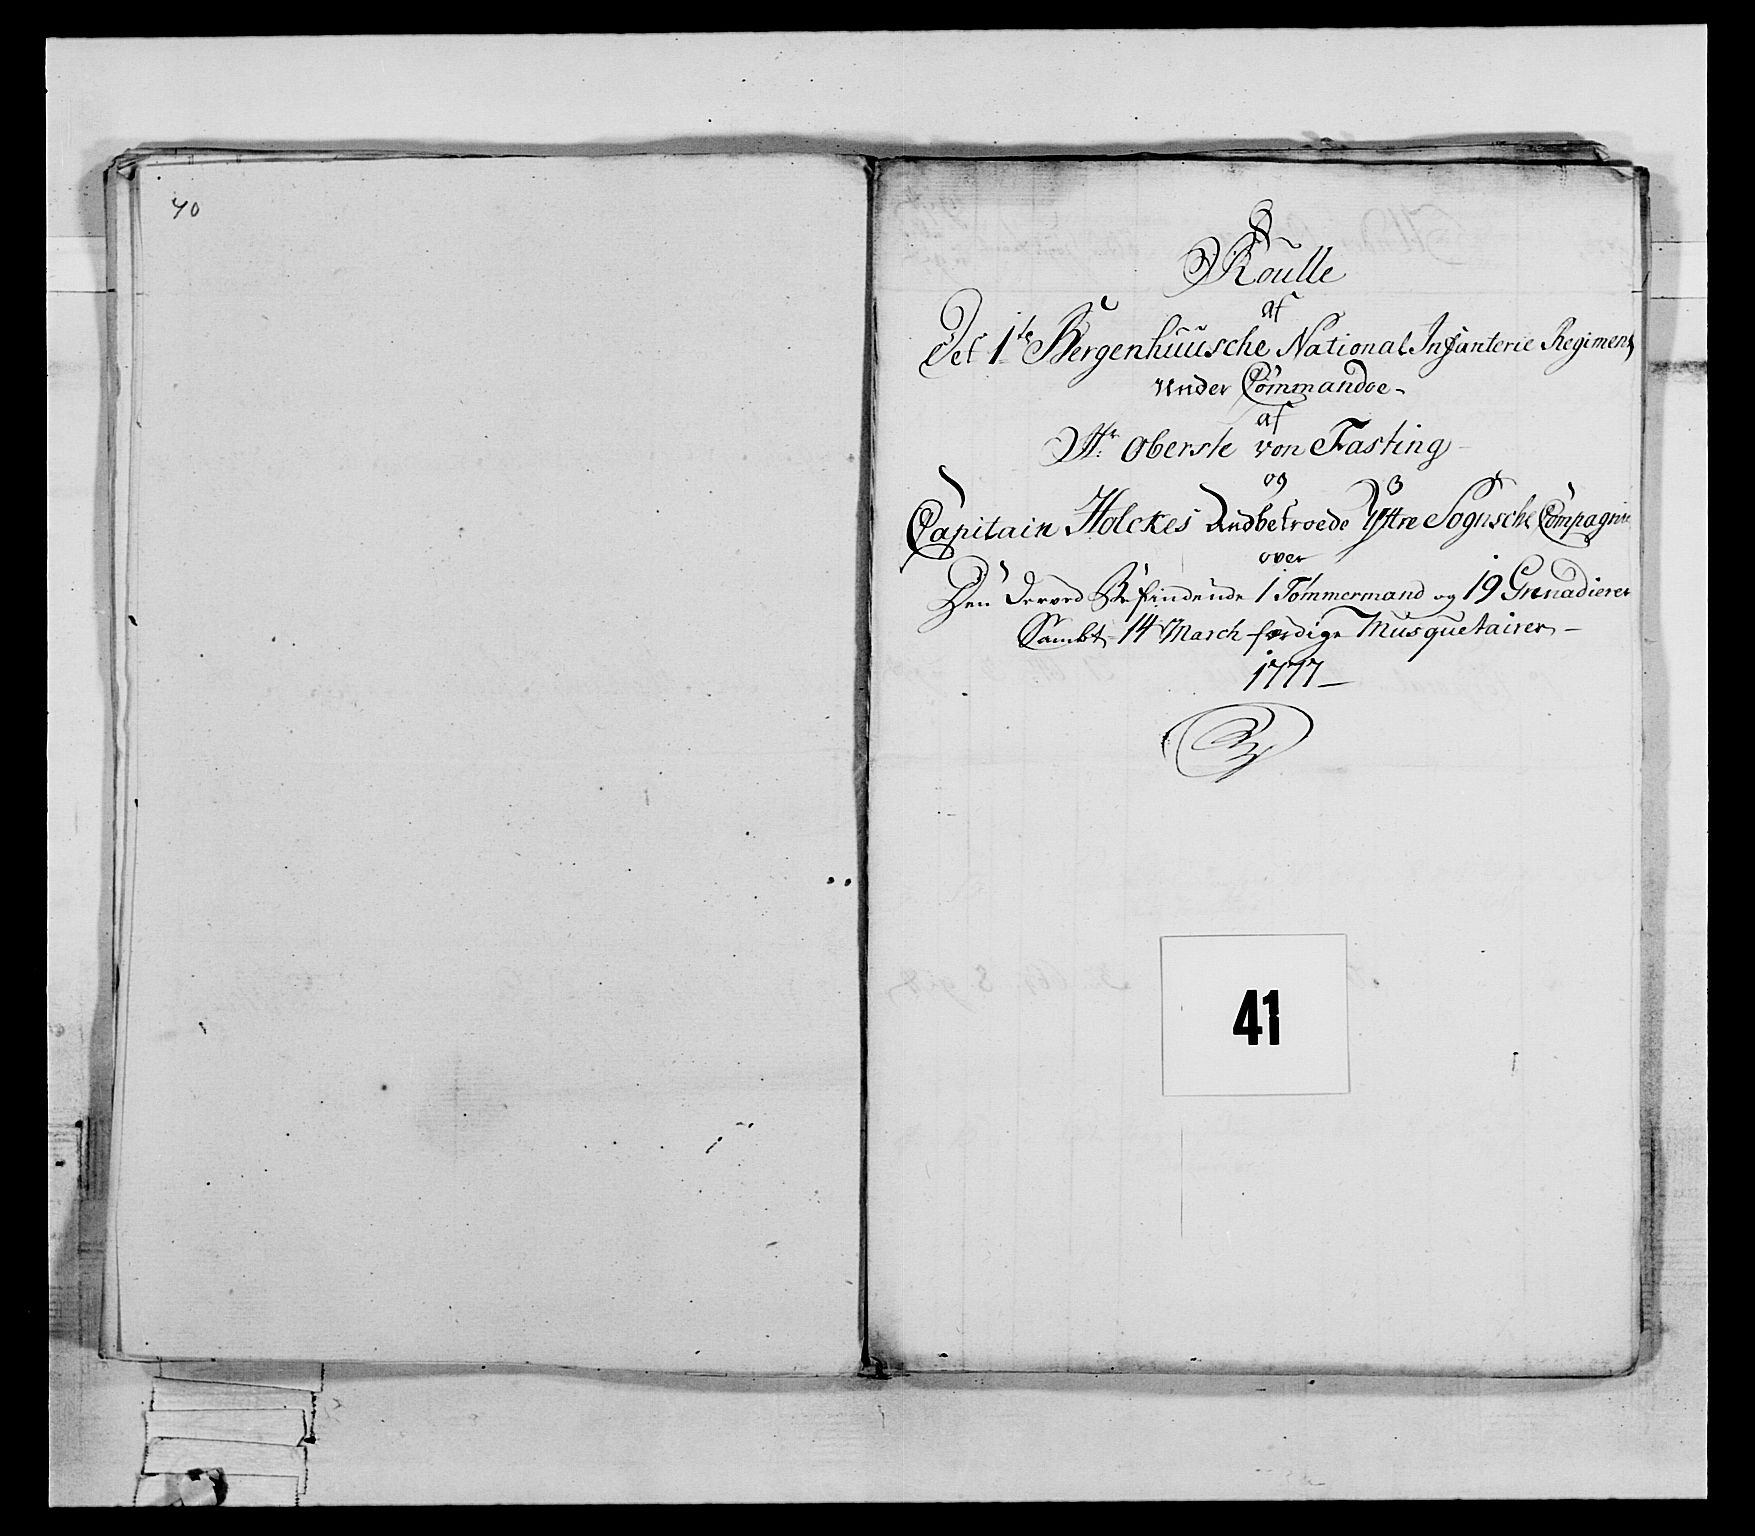 40
Roulle
af
Det 1te Bergenhuusche National Infanterie Regiment
under Commandoe
af
Hr: Oberste von Fasting
og
Capitain Holckes Andbetroede Yttre Sognsche Compagnie
over
Den derved Befindende 1 Tømmermand og 19 Grenadierer
Sambt 14 March færdige Musquetairer
1777
41